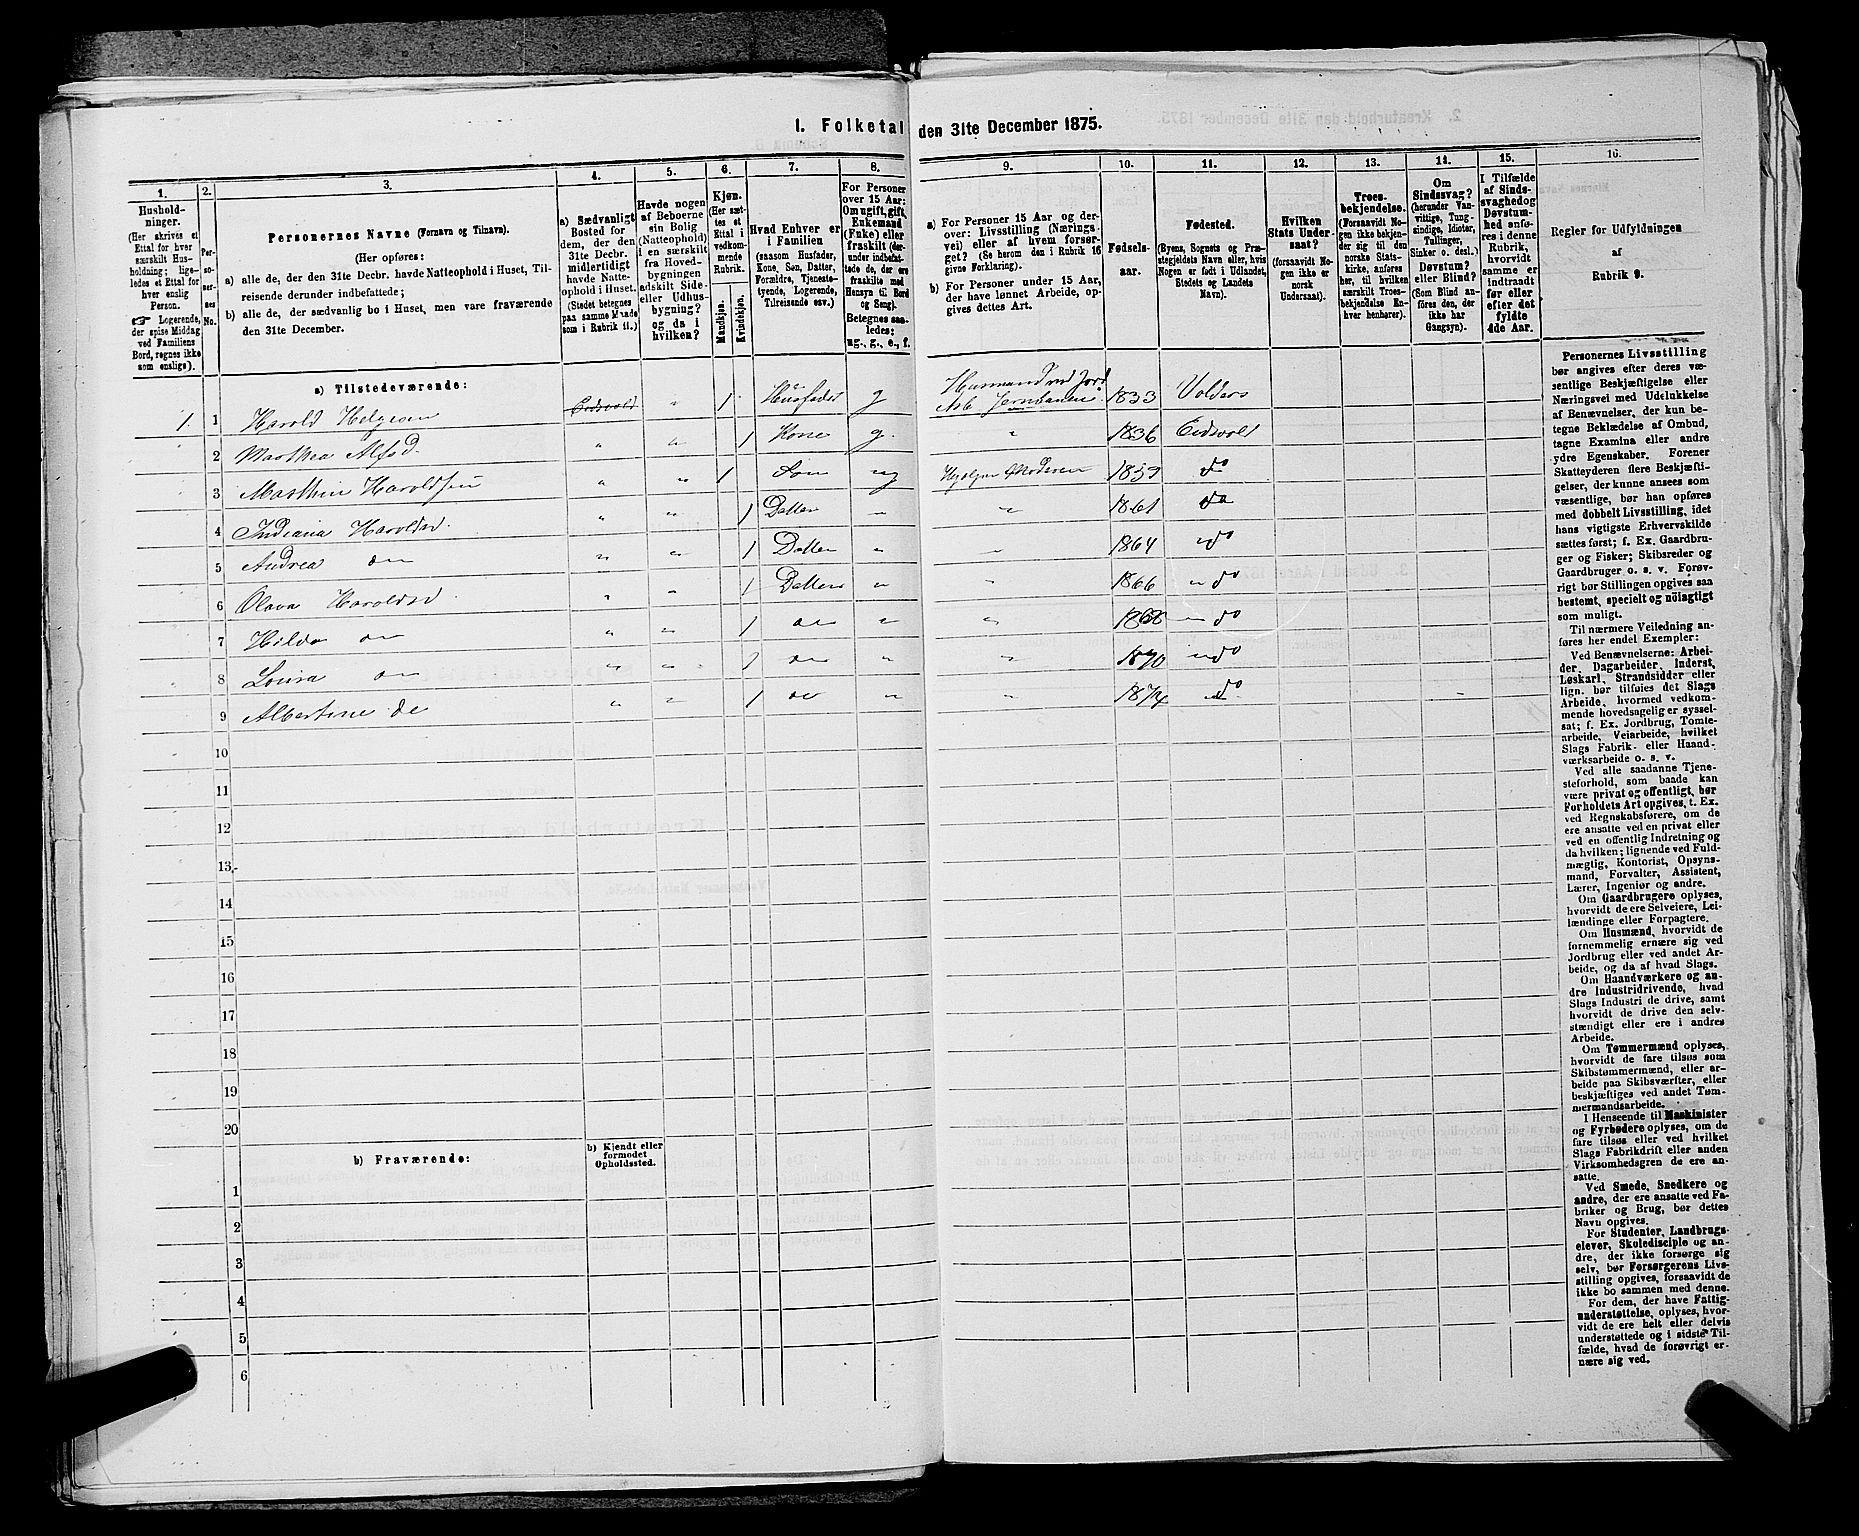 1. Folketal den 31te December 1875.
1.
Hushold-
ninger.
(Her skrives et
Ettal for hver
særskilt Hus-
holdning; lige-
ledes et Ettal for
hver enslig
Person.
☞ Logerende,
der spise Middag
ved Familiens
Bord, regnes ikke
som enslige).
2.
Per-
so-
ner-
nes
No.
3.
Personernes Navne (Fornavn og Tilnavn).
(Her opføres:
a) alle de, der den 31te Decbr. havde Natteophold i Huset, Til-
reisende derunder indbefattede;
b) alle de, der sædvanlig bo i Huset, men vare fraværende
den 31te December.
4.
a) Sædvanligt
Bosted for
dem, der den
31te Decbr.
midlertidigt
havde Natte-
ophold i Huset.
(Stedet betegnes
paa samme Maade
som i Rubrik 11.)
5.
Havde nogen
af Beboerne
sin Bolig
(Natteophold)
i en særskilt
fra Hoved-
bygningen
adskilt Side-
eller Udhus-
bygning?
og da i
hvilken?
6.
Kjøn.
(Her sæt-
tes et
Ettal i
vedkom-
mende
Rubrik.
Mandkjøn.
Kvindekjøn.
7.
Hvad Enhver er
i Familien
(saasom Husfader,
Kone, Søn, Datter,
Forældre, Tjeneste-
tyende, Logerende,
Tilreisende osv.)
8.
For Personer
over 15 Aar:
Om ugift, gift,
Enkemand
(Enke) eller
fraskilt (der-
under indbefat-
tede de, der ere
fraskilte med
Hensyn til Bord
og Seng).
Betegnes saa-
ledes:
ug., g., e., f.
9.
a) For Personer 15 Aar og der-
over: Livsstilling (Nærings-
vei) eller af hvem forsør-
get? (Se herom den i Rubrik 16
givne Forklaring).
b) For Personer under 15 Aar,
der have lønnet Arbeide, op-
gives dettes Art.
10.
Fødsels-
aar.
11.
Fødested.
(Byens, Sognets og Præ-
stegjeldets Navn eller, hvis
Nogen er født i Udlandet,
Stedets og Landets
Navn).
12.
Hvilken
Stats Under-
saat?
(forsaavidt No-
gen ikke er
norsk
Undersaat).
13.
Troes-
bekjendelse.
(Forsaavidt No-
gen ikke bekjen-
der sig til den
norske Stats-
kirke, anføres
her, til hvilken
særskilt Troes-
bekjendelse En-
hver henhører).
14.
Om
Sindssvag?
(herunder Van-
vittige, Tung-
sindige, Idioter,
Tullinger,
Sinker o. desl.)
Døvstum?
eller Blind?
(Som Blind an-
føres den, der
ikke har
Gangsyn).
15.
I Tilfælde
af Sinds-
svaghed og
Døvstum-
hed anfø-
res i denne
Rubrik,
hvorvidt
samme er
indtraadt
før eller
efter det
fyldte
4de Aar.
16.
Regler for Udfyldningen
af
Rubrik 9.
a) Tilstedeværende:
1. 1 Harold Helgesen Eidsvold " 1 Husfader g Husmand ved Jord 1833 Volders
Arb Jernbanen
2 Marthea Alfsd. " " 1 Kone g. " 1836 Eidsvold
3 Marthin Haroldsen " " 1 Søn ug Hjelper Moderen 1859 do
4 Indiana Haroldsd. " " 1 Datter " " 1861 do
5 Andrea do " " 1 Datter " " 1864 do
6 Olava Haroldsd " " 1 Datter " " 1866 " do
7 Hilda do " " 1 do " " 1868 " do
8 Lovisa do " " 1 do " " 1870 " do
9 Albertine do " " 1 do " " 1874 do
10
11
12
13
14
15
16
17
18
19
20
b) Fraværende:
b) Kjendt eller
formodet
Opholdssted.
1
2
3
4
5
6
Personernes Livsstilling
bør angives efter deres væ-
sentlige Beskjæftigelse eller
Næringsvei med Udelukkelse
af Benævnelser, der kun be-
tegne Beklædelse af Ombud,
tagne Examina eller andre
ydre Egenskaber. Forener
Skatteyderen flere Beskjæfti-
gelser, der kunne ansees som
væsentlige, bør han opføres
med dobbelt Livsstilling, idet
hans vigtigste Erhvervskilde
sættes først; f. Ex. Gaardbru-
ger og Fisker; Skibsreder og
Gaardbruger o. s. v. Forøv-
rigt bør Stillingen opgives saa
bestemt, specielt og nöiagtigt
som muligt.
Til nærmere Veiledning an-
føres her endel Exempler:
Ved Benævnelserne: Arbei-
der, Dagarbeider, Inderst,
Løskarl, Strandsidder eller
lign. bør tilføies det Slags
Arbeide, hvormed vedkom-
mende hovedsagelig er syssel-
sat; f. Ex. Jordbrug, Tomte-
arbeide, Veiarbeide, hvilket
Slags Fabrik- eller Haand-
værksarbeide o. s. v.
Ved alle saadanne Tjene-
steforhold, som baade kan
være privat og offentligt, bør
Forholdets Art opgives, t. Ex.
ved Regnskabsførere, om de
ere ansatte ved en privat eller
ved en offentlig Indretning og
da hvilken; lignende ved Fuld-
mægtig, Kontorist, Opsyns-
mand, Forvalter, Assistent,
Lærer, Ingeniør og andre.
Om Gaardbrugere oplyses,
hvorvidt de ere Selveiere, Lei-
lændinge eller Forpagtere.
Om Husmænd, hvorvidt de
fornemmelig ernære sig ved
Jordbrug eller ved andet Ar-
beide, og da af hvad Slags.
Om Haandværkere og an-
dre Industridrivende, hvad
Slags Industri de drive, samt
hvorvidt de drive den selv-
stændigt eller ere i andres
Arbeide.
Om Tømmermænd oplyses,
hvorvidt de fare tilsøs som
Skibstømmermænd, eller ar-
beide paa Skibsværfter, eller
beskjæftiges ved andet Tøm-
mermandsarbeide.
I Henseende til Maskinister
og Fyrbødere oplyses, om de
fare tilsøs eller ved hvilket
Slags Fabrikdrift eller anden
Virksomhedsgren de ere an-
satte.
Ved Smede, Snedkere og
andre, der ere ansatte ved Fa-
briker og Brug, bør dettes
Navn opgives.
For Studenter, Landbrugs-
elever, Skoledisciple og an-
dre, der ikke forsørge sig
selv, bør Forsørgerens Livs-
stilling opgives, forsaavidt de
ikke bo sammen med denne.
For dem, der have Fattig-
understøttelse, oplyses, hvor-
vidt de ere helt eller delvis
understøttede og i sidste Til-
fælde, hvad de forøvrigt er-
nære sig ved.